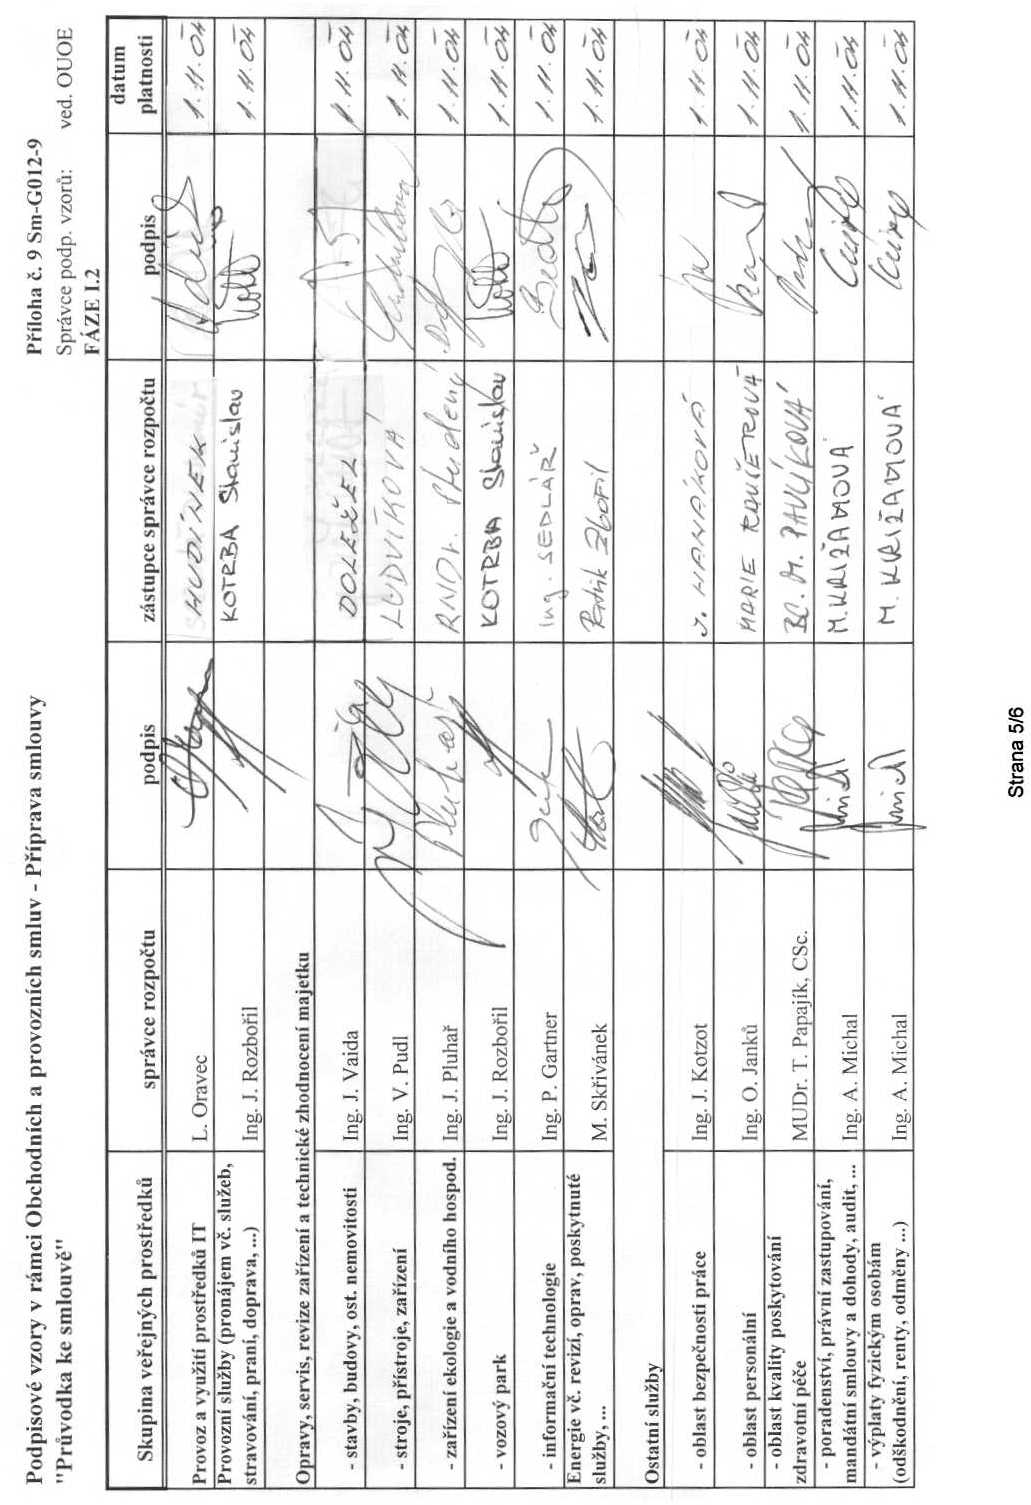 Příloha č. 9 Sm-G012-9
Podpisové vzory v rámci Obchodních a provozních smluv - Příprava smlouvy
Správce podp. vzorů: ved. OUOE
"Průvodka ke smlouvě"
FÁZE I.2
Skupina veřejných prostředků správce rozpočtu podpis zástupce správce rozpočtu podpis datum platnosti
Provoz a využití prostředků IT L. Oravec HUDÍNEK 1.11.04
Provozní služby (pronájem vč. služeb, stravování, praní, doprava, ...) Ing. J. Rozbořil KOTRBA Stanislav 1.11.04
Opravy, servis, revize zařízení a technické zhodnocení majetku
- stavby, budovy, ost. nemovitosti Ing. J. Vaida DOLEŽEL 1.11.04
- stroje, přístroje, zařízení Ing. V. Pudl LUDVÍKOVÁ 1.11.04
- zařízení ekologie a vodního hospod. Ing. J. Pluhař RNDr. Studený 1.11.04
- vozový park Ing. J. Rozbořil KOTRBA Stanislav 1.11.04
- informační technologie Ing. P. Gartner Ing. SEDLÁŘ 1.11.04
Energie vč. revizí, oprav, poskytnuté služby, ... M. Skřivánek Zbořil 1.11.04
Ostatní služby
- oblast bezpečnosti práce Ing. J. Kotzot J. HANÁKOVÁ 1.11.04
- oblast personální Ing. O. Janků MARIE 1.11.04
- oblast kvality poskytování zdravotní péče MUDr. T. Papajík, CSc. BC. M. PAVLÍKOVÁ 1.11.04
- poradenství, právní zastupování, mandátní smlouvy a dohody, audit, ... Ing. A. Michal M. KRIŽANOVÁ 1.11.04
- výplaty fyzickým osobám (odškodnění, renty, odměny ...) Ing. A. Michal M. KRIŽANOVÁ 1.11.04
Strana 5/6